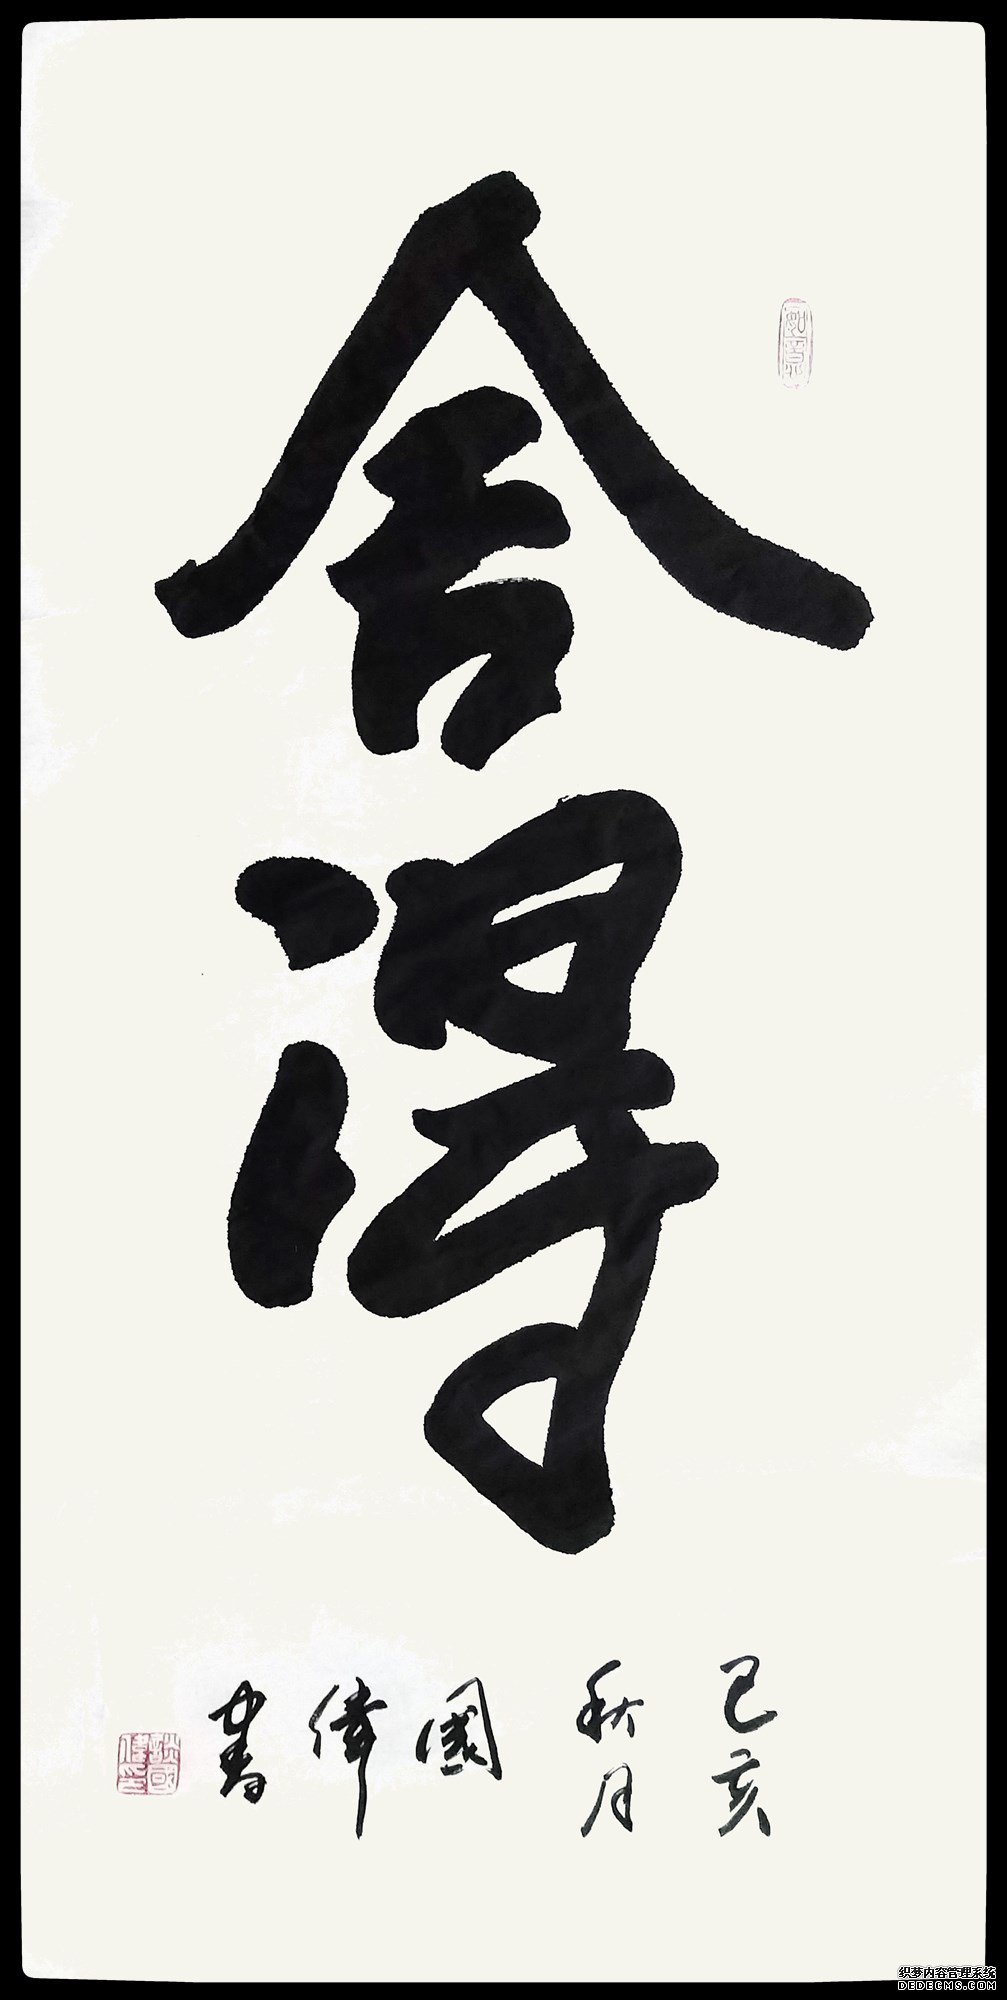 舍得
己亥
秋月
國偉書
談國偉印
织梦内容管理系统
DEDECMS.COM